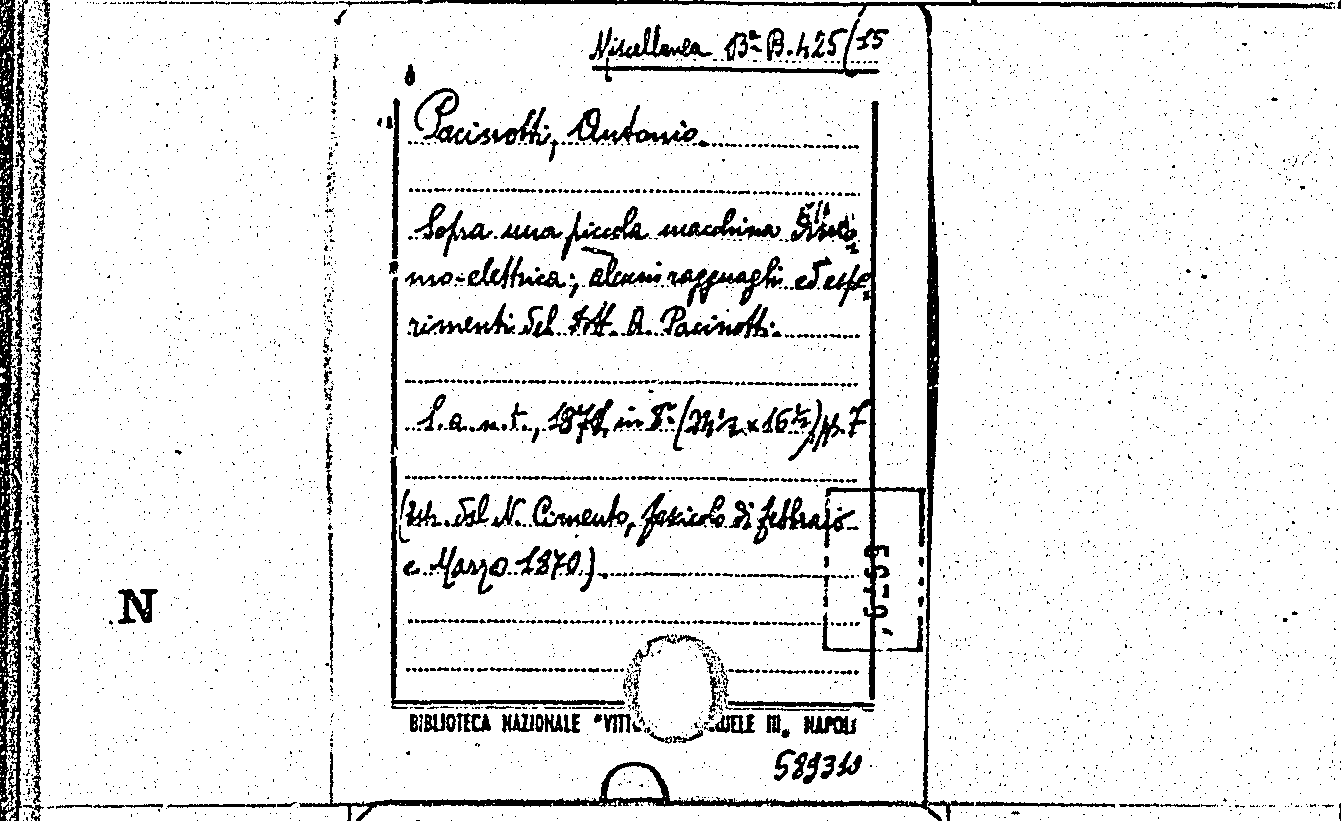 Miscellanea Ba B. 425/15
Pacinotti, Antonio.
Sopra una piccola macchina
mo-elettrica; alcuni ragguagli ed espe
rimenti del dott. A. Pacinotti.
S. a. n. t., in 8° (24½ x 16½) pp. 7
(Estr. dal N. Cimento, fascicolo di febbraio
e Marzo 1870).
N
BIBLIOTECA NAZIONALE "VITTO ELE III. NAPOLI
589310